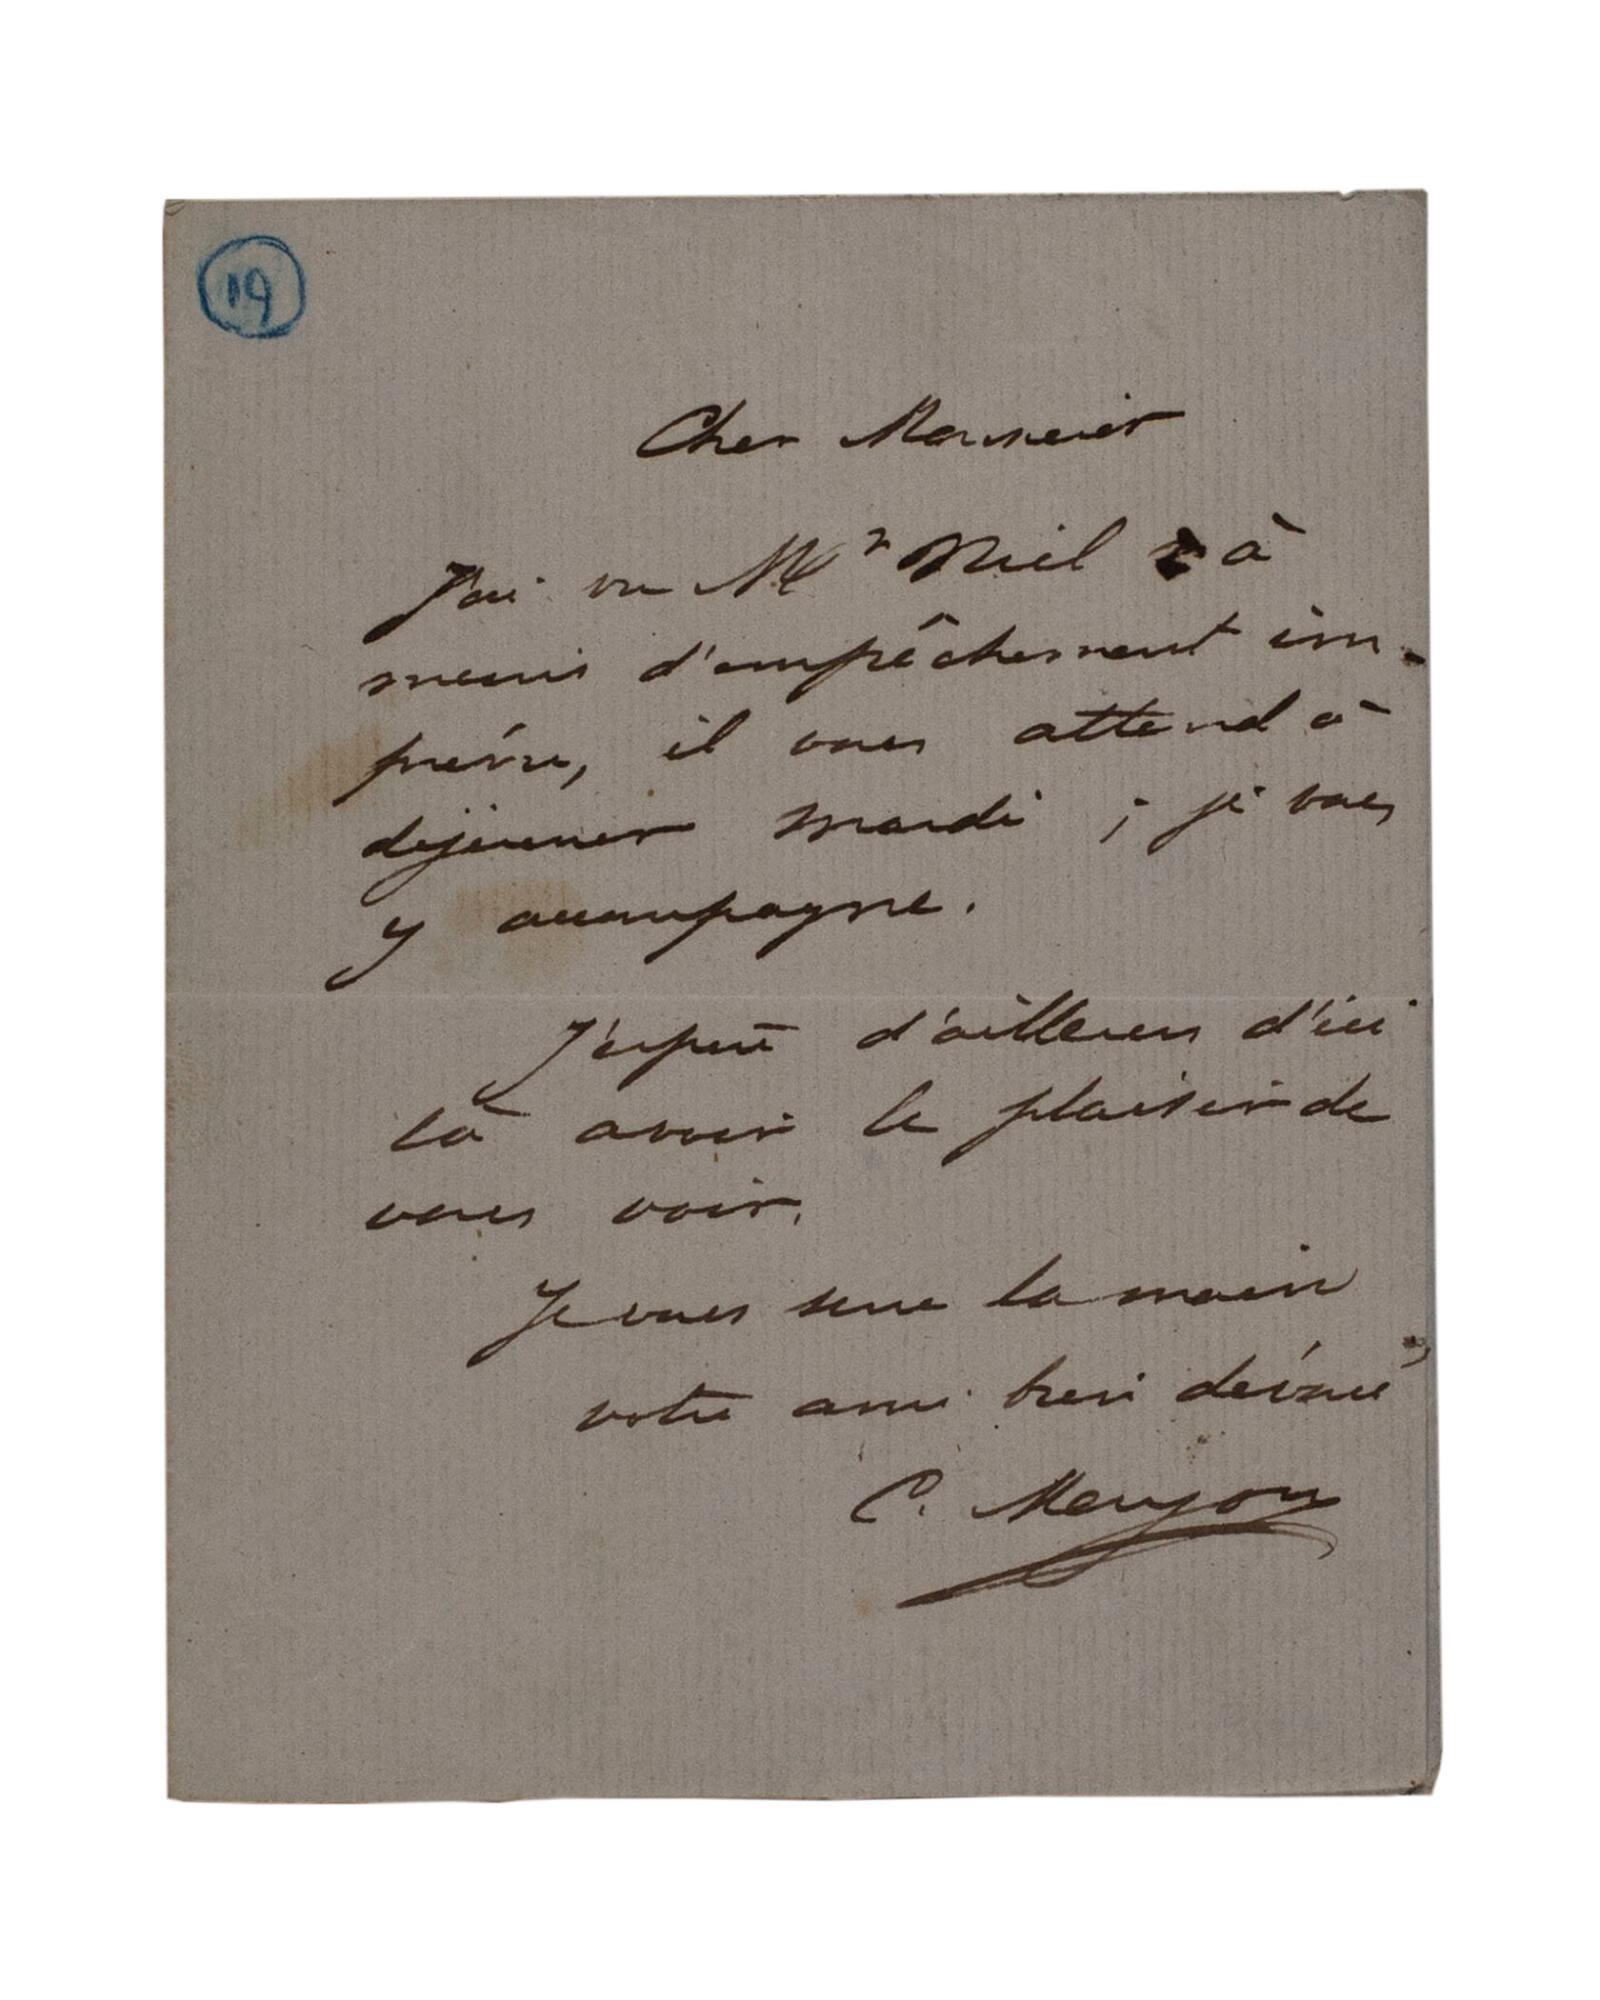 19
Cher Monsieur
J'ai vu Mr Niel à
moins d'empêchement im-
prévu, il vous attend à
dejeuner mardi ; je vous
y accompagne.
J'espère d'ailleurs d'ici
là avoir le plaisir de
vous voir.
Je vous serre la main
votre ami bien dévoué
C. Meryon